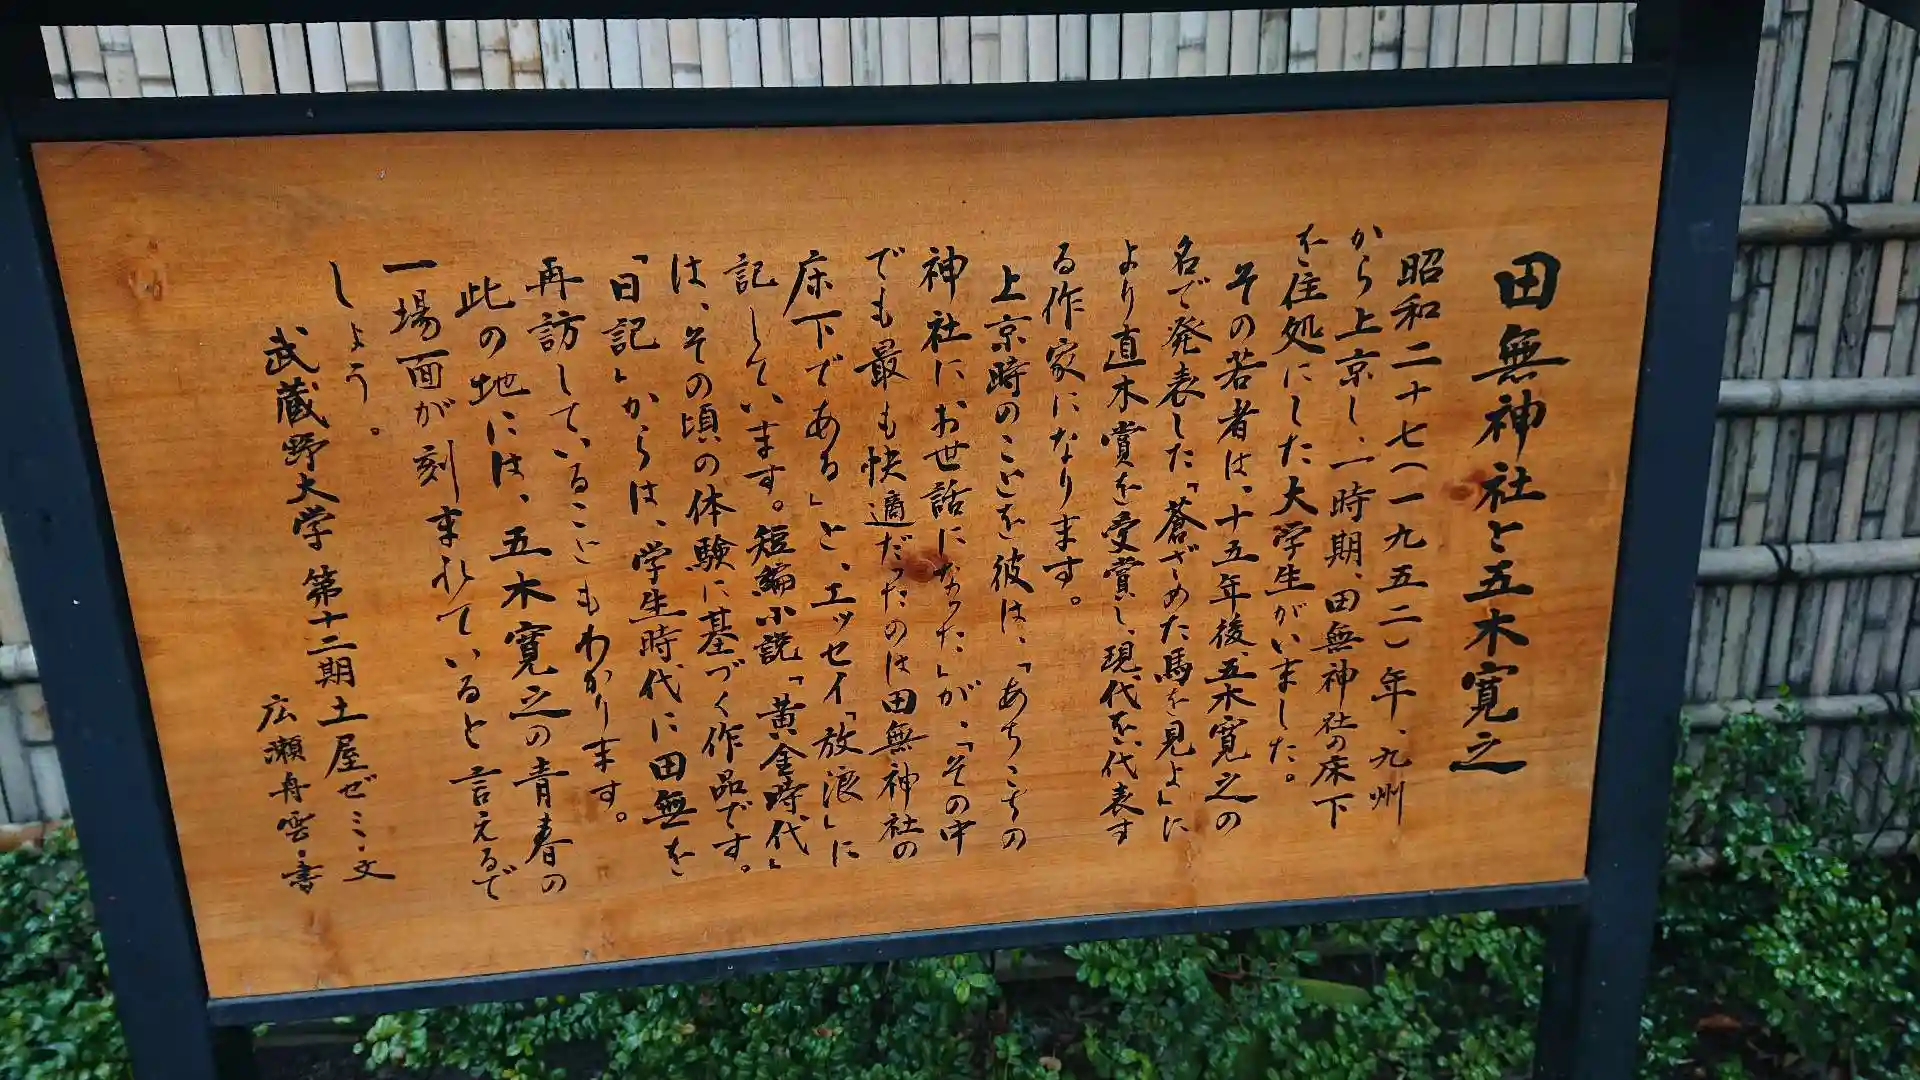 田無神社と五木寛之
昭和二十七(一九五二)年、九州
から上京し、一時期、田無神社の床下
を住処にした大学生がいました。
その若者は、十五年後、五木寛之の
名で発表した「蒼ざめた馬を見よ」に
より直木賞を受賞し、現代を代表す
る作家になります。
上京時のことを彼は、「あちこちの
神社にお世話になった」が、「その中
でも最も快適だったのは田無神社の
床下である」と、エッセイ「放浪」に
記しています。短編小説「黄金時代」
は、その頃の体験に基づく作品です。
「日記」からは、学生時代に田無を
再訪していることもわかります。
此の地には、五木寛之の青春の
一場面が刻まれていると言えるで
しょう。
武蔵野大学 第十二期土屋ゼミ・文
広瀬舟雲・書